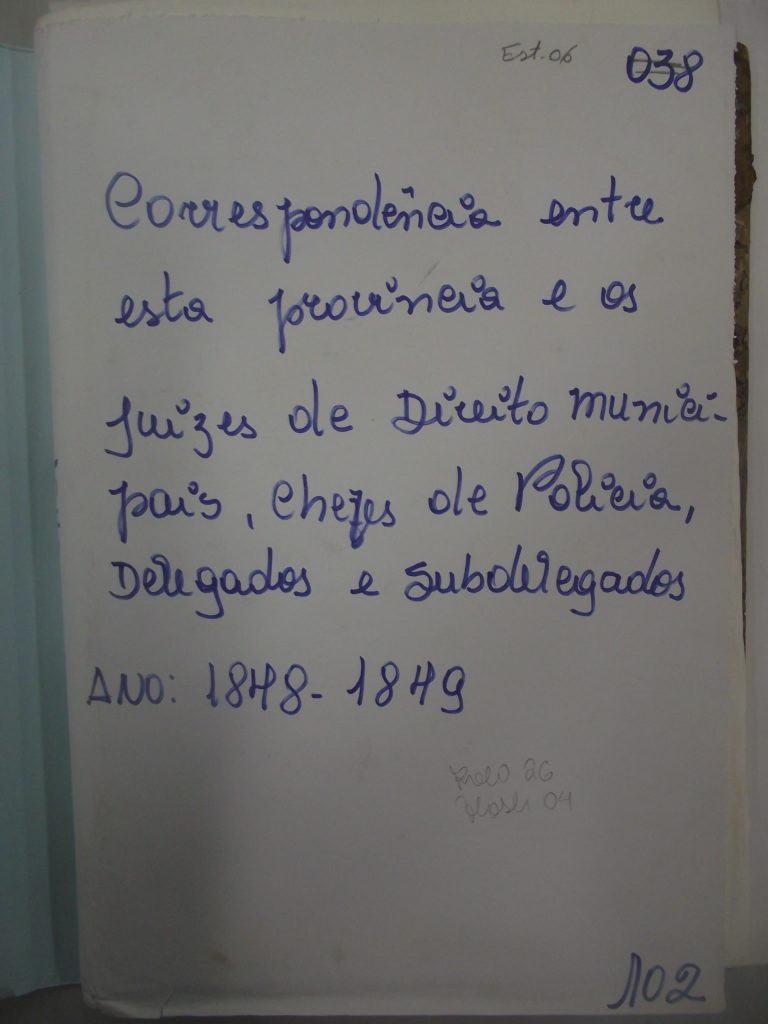 Est. 06
038
Correspondência entre
esta provincia e os
juizes de Direito munici-
pais, chefes de Policia,
Delegados e subdelegados
ANO: 1848-1849
Rolo 26
Flash 04
102